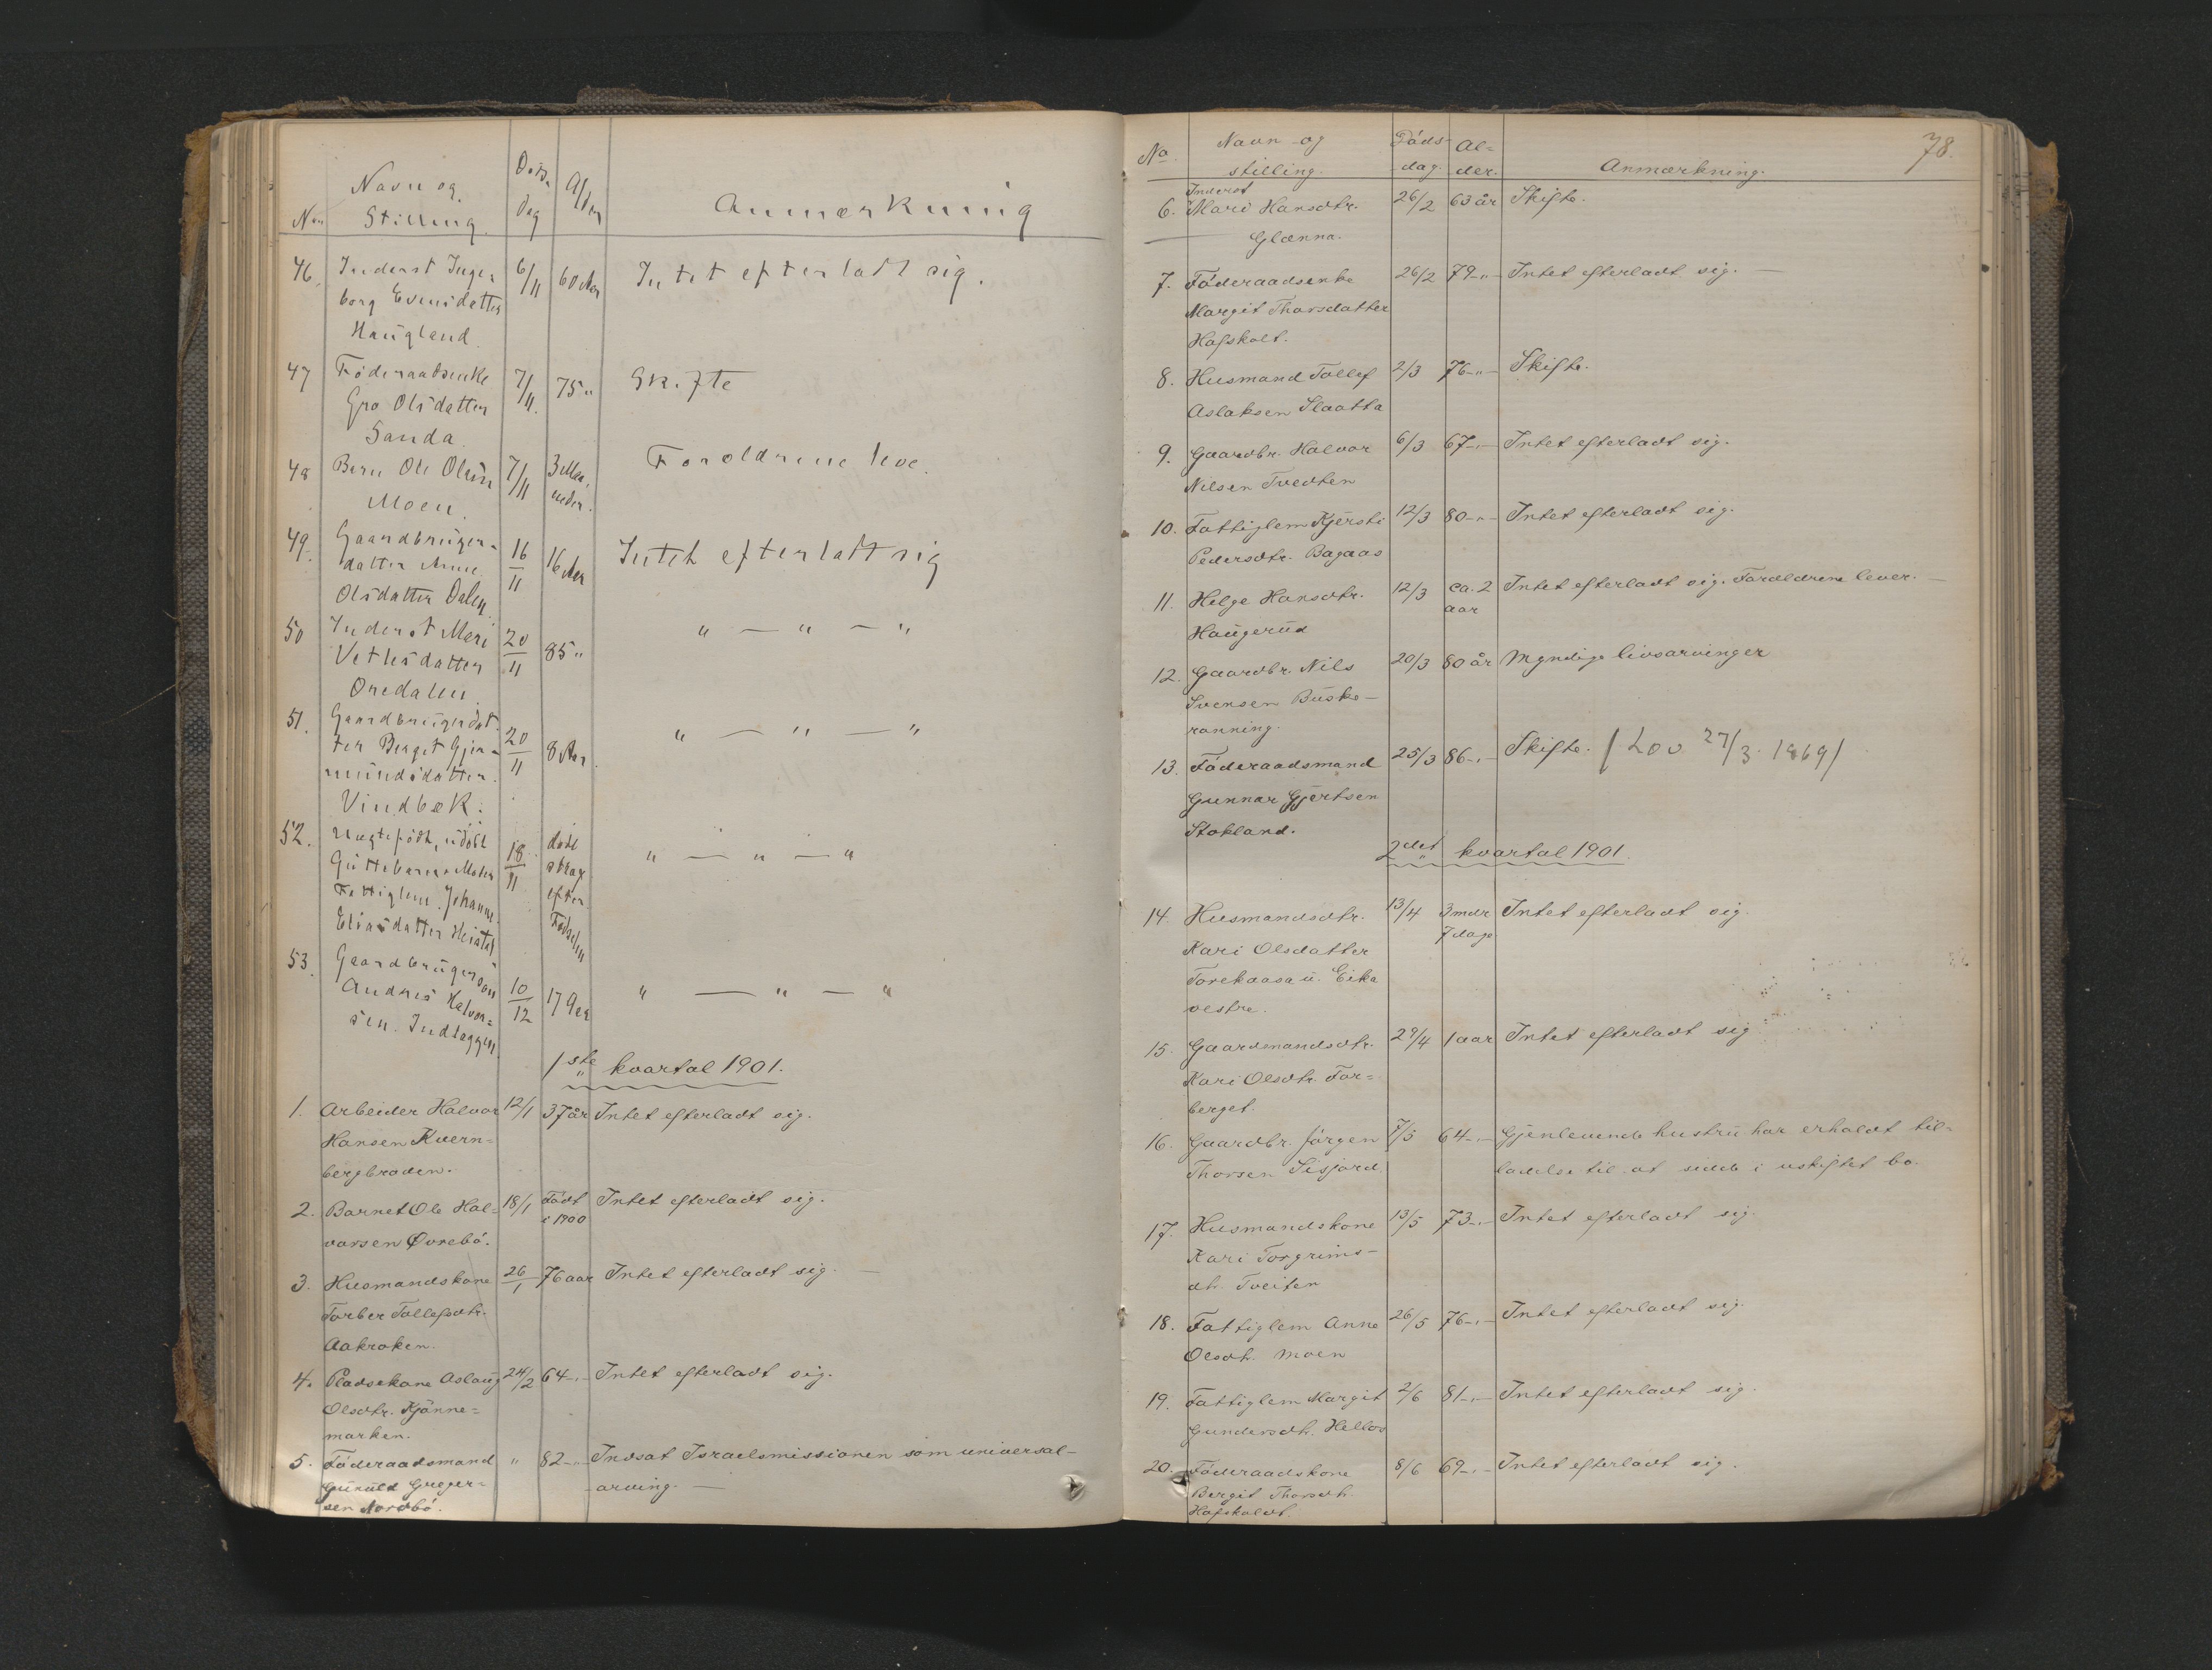 Navn og
Döds-
Dag
Alder
Anmærkning
Nr.
Stilling
46. Inderst Inge- 6/11 60 Aar Intet efterladt sig.
borg Evensdatter
Haugland.
47 Föderaadsenke 7/11. 75 " Skifte
Gro Olsdatter
Sanda.
48 Barn Ole Olsen 7/11 3 Maa- Foreldrene leve.
Moen. neder.
49. Gaardbruger- 16/11 16 Aar Intet efterladt sig
datter Anne
Olsdatter Dalen
50 Inderst Mari 20/11 85 " " — " — "
Vetlesdatter
Oredalen
51. Gaardbrugerdat- 20/11 8 Aar. " — " — "
ter Berget Gjer-
mundsdatter.
Vindbæk.
52. Uægtefødt, udöbt 18/11 död " — " — "
Guttebarn. Moder strax
Fattiglem. Johanne efter
Eliasdatter Fødselen
53. Gaardbrugersøn 10/12 17 Aar " — " — "
Andres Halvor-
sen. Indlæggen
1ste kvartal 1901.
1. Arbeider Halvor 12/1 37 år Intet efterladt sig.
Hansen Kvern-
bergbraden.
2. Barnet Ole Hal- 18/1 Född Intet efterladt sig.
vorsen Øvrebö. i 1900
3. Husmandskone 26/1 76 aar Intet efterladt sig. —
Torber Tollefsdtr.
Aakroken.
4. Pladsekone Aslaug 24/2 64 -"- Intet efterladt sig.
Olsdtr. Kjönne-
marken.
5. Föderaadsmand " 82 -"- Indsat Israelsmissionen som universal-
Gunuld Greger- arving. —
sen Nordbö.
78.
No. Navn og Döds- Al-
stilling. dag. der. Anmærkning.
Inderst
6. Mari Hansdtr. 26/2 63 år Skifte.
Glænna.
7. Föderaadsenke 26/2 79 -"- Intet efterladt sig. —
Margit Thorsdatter
Hafskolt.
8. Husmand Tollef 2/3 76 -"- Skifte.
Aslaksen Slaatta
9. Gaardbr. Halvor 6/3 67 -"- Intet efterladt sig.
Nilsen Tvedten
10. Fattiglem Kjersti 12/3 80 -"- Intet efterladt sig.
Pedersdtr. Bagaas
11. Helge Hansdtr. 12/3 ca. 2 Intet efterladt sig. Forældrene lever. —
Haugerud aar
12. Gaardbr. Nils 20/3 80 år Myndige livsarvinger
Svensen Buske-
ranning.
13. Föderaadsmand 25/3 86 -"- Skifte. / Lov 27/3. 1869/
Gunnar Gjertsen
Stokland.
2det kvartal 1901.
14. Husmandsdtr. 13/4 3 mdr Intet efterladt sig.
Kari Olsdatter 7 dage
Torekaasa u. Eika
vestre.
15. Gaardmandsdtr. 29/4 1 aar Intet efterladt sig
Kari Olsdtr. For-
berget.
16. Gaardbr. Jörgen 7/5 64 -"- Gjenlevende hustru har erholdt til-
Thorsen Sisjord ladelse til at sidde i uskiftet bo.
17. Husmandskone 13/5 73 -"- Intet efterladt sig.
Kari Torgrims-
dtr. Tveiten
18. Fattiglem Anne 26/5 76 -"- Intet efterladt sig.
Olsdtr. Moen
19. Fattiglem Margit 2/6 81 -"- Intet efterladt sig.
Gundersdtr. Hellos
20. Föderaadskone 8/6 69 -"- Intet efterladt sig.
Bergit Thorsdtr.
Hafskoldt.